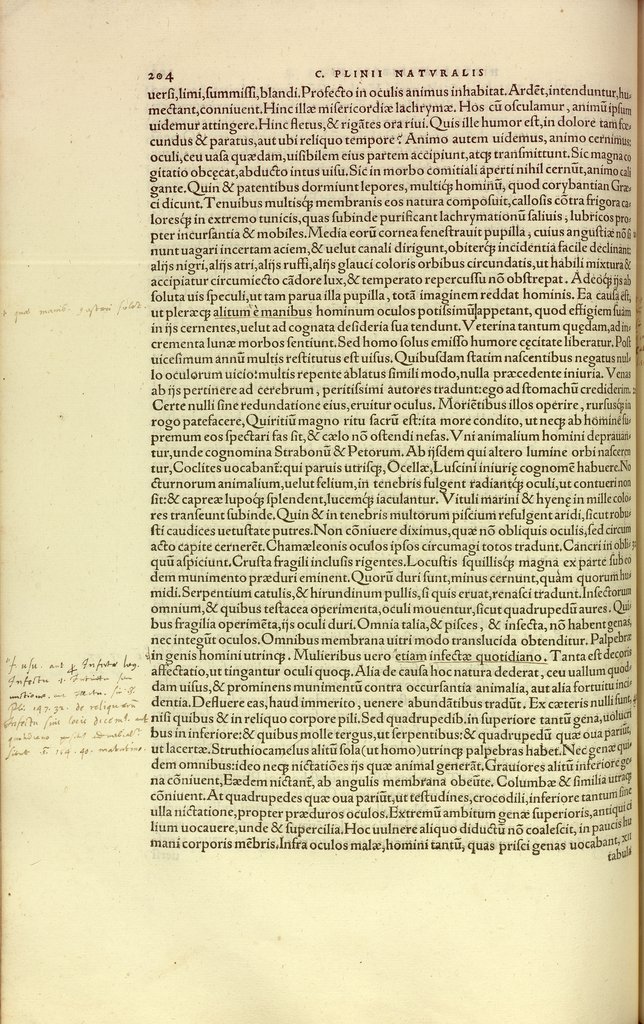 204 C. PLINII NATVRALIS
uersi,limi,summissi,blandi.Profecto in oculis animus inhabitat.Ardẽt,intenduntur,hu-
mectant,conniuent.Hinc illæ misericordiæ lachrymæ. Hos cũ osculamur, animũ ipsum
uidemur attingere.Hinc fletus,& rigãtes ora riui.Quis ille humor est,in dolore tam fœ-
cundus & paratus,aut ubi reliquo tempore? Animo autem uidemus, animo cernimus:
oculi,ceu uasa quædam,uisibilem eius partem accipiunt,atqȝ transmittunt.Sic magna co
gitatio obcęcat,abducto intus uisu.Sic in morbo comitiali aperti nihil cernũt,animo cali
gante.Quin & patentibus dormiunt lepores, multiqȝ hominũ, quod corybantian Græ-
ci dicunt.Tenuibus multisqȝ membranis eos natura composuit,callosis cõtra frigora ca-
loresqȝ in extremo tunicis,quas subinde purificant lachrymationũ saliuis, lubricos pro-
pter incursantia & mobiles.Media eorũ cornea fenestrauit pupilla, cuius angustiæ nõ si
nunt uagari incertam aciem,& uelut canali dirigunt,obiterqȝ incidentia facile declinant:
alijs nigri,alijs atri,alijs ruffi,alijs glauci coloris orbibus circundatis,ut habili mixtura &
accipiatur circumiecto cãdore lux,& temperato repercussu nõ obstrepat. Adeoqȝ ijs ab
soluta uis speculi,ut tam parua illa pupilla, totã imaginem reddat hominis. Ea causa est,
ut pleræqȝ alitum è manibus hominum oculos potissimũ appetant, quod effigiem suam
in ijs cernentes,uelut ad cognata desideria sua tendunt.Veterina tantum quędam,ad in-
crementa lunæ morbos sentiunt.Sed homo solus emisso humore cęcitate liberatur.Post
uicesimum annũ multis restitutus est uisus.Quibusdam statim nascentibus negatus nul-
lo oculorum uicio:multis repente ablatus simili modo,nulla præcedente iniuria. Venas
ab ijs pertinere ad cerebrum, peritissimi autores tradunt:ego ad stomachũ crediderim.
Certe nulli sine redundatione eius,eruitur oculus. Moriẽtibus illos operire, rursusqȝ in
rogo patefacere,Quiritiũ magno ritu sacrũ est:ita more condito, ut neqȝ ab homine su-
premum eos spectari fas sit,& cælo nõ ostendi nefas. Vni animalium homini deprauan-
tur,unde cognomina Strabonũ & Petorum. Ab ijsdem qui altero lumine orbi nasceren
tur,Coclites uocabant:qui paruis utrisqȝ,Ocellæ,Luscini iniurię cognomẽ habuere.No
cturnorum animalium,uelut felium,in tenebris fulgent radiantqȝ oculi,ut contueri non
sit:& capreæ lupoqȝ splendent,lucemqȝ iaculantur. Vituli marini & hyęnę in mille colo-
res transeunt subinde.Quin & in tenebris multorum piscium refulgent aridi,sicut robu-
sti caudices uetustate putres.Non cõniuere diximus,quæ nõ obliquis oculis,sed circum
acto capite cernerẽt.Chamæleonis oculos ipsos circumagi totos tradunt.Cancri in obli-
quũ aspiciunt.Crusta fragili inclusis rigentes.Locustis squillisqȝ magna ex parte sub eo
dem munimento præduri eminent.Quorũ duri sunt,minus cernunt,quàm quorum hu-
midi.Serpentium catulis,& hirundinum pullis,si quis eruat,renasci tradunt.Insectorum
omnium,& quibus testacea operimenta,oculi mouentur,sicut quadrupedũ aures. Qui-
bus fragilia operimẽta,ijs oculi duri.Omnia talia,& pisces, & insecta, nõ habent genas,
nec integũt oculos.Omnibus membrana uitri modo translucida obtenditur. Palpebræ
in genis homini utrinqȝ. Mulieribus uero etiam infectæ quotidiano. Tanta est decoris
affectatio,ut tingantur oculi quoqȝ.Alia de causa hoc natura dederat, ceu uallum quod
dam uisus,& prominens munimentũ contra occursantia animalia, aut alia fortuitu inci-
dentia.Defluere eas,haud immerito, uenere abundãtibus tradũt. Ex cæteris nulli sunt,
nisi quibus & in reliquo corpore pili.Sed quadrupedib.in superiore tantũ gena,uolucri
bus in inferiore:& quibus molle tergus,ut serpentibus:& quadrupedũ quæ oua pariũt,
ut lacertæ.Struthiocamelus alitũ sola(ut homo)utrinqȝ palpebras habet.Nec genæ qui-
dem omnibus:ideo neqȝ nictatiões ijs quæ animal generãt.Grauiores alitũ inferiore ge-
na cõniuent,Eædem nictant, ab angulis membrana obeũte. Columbæ & similia utraqȝ
cõniuent.At quadrupedes quæ oua pariũt,ut testudines,crocodili,inferiore tantum sine
ulla nictatione,propter præduros oculos.Extremũ ambitum genæ superioris,antiqui ci
lium uocauere,unde & supercilia.Hoc uulnere aliquo diductũ nõ coalescit, in paucis hu
mani corporis mẽbris.Infra oculos malæ,homini tantũ, quas prisci genas uocabant,xii
tabulæ